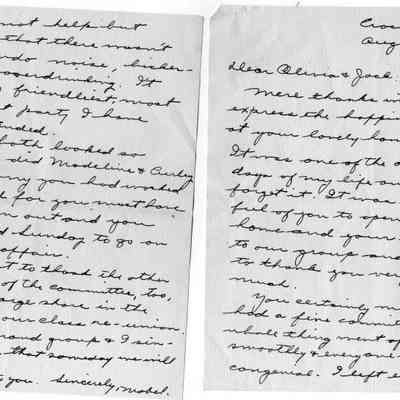 not help but
that there wasn't
ndo noise, bicker-
overdrinking. It
friendliest, most
t party I have
ended.
both looked so
did Madeline & Curley
ny you had worked
for you must have
n out and you
d Sunday to go on
affair.
t to thank the other
of the committee, too,
arge share in the
our class re-union.
rand group & I sin-
that someday we will
you. Sincerely, Mabel.
Cros
Aug
Dear Olivia & Jack:
Mere thanks
express the happi
at your lovely ho
It was one of the
days of my life
forget it. It was
ful of you to open
home and your
to our group and
to thank you ver
much.
You certainly m
had a fine commit
whole thing went of
smoothly & everyone
congenial. I left